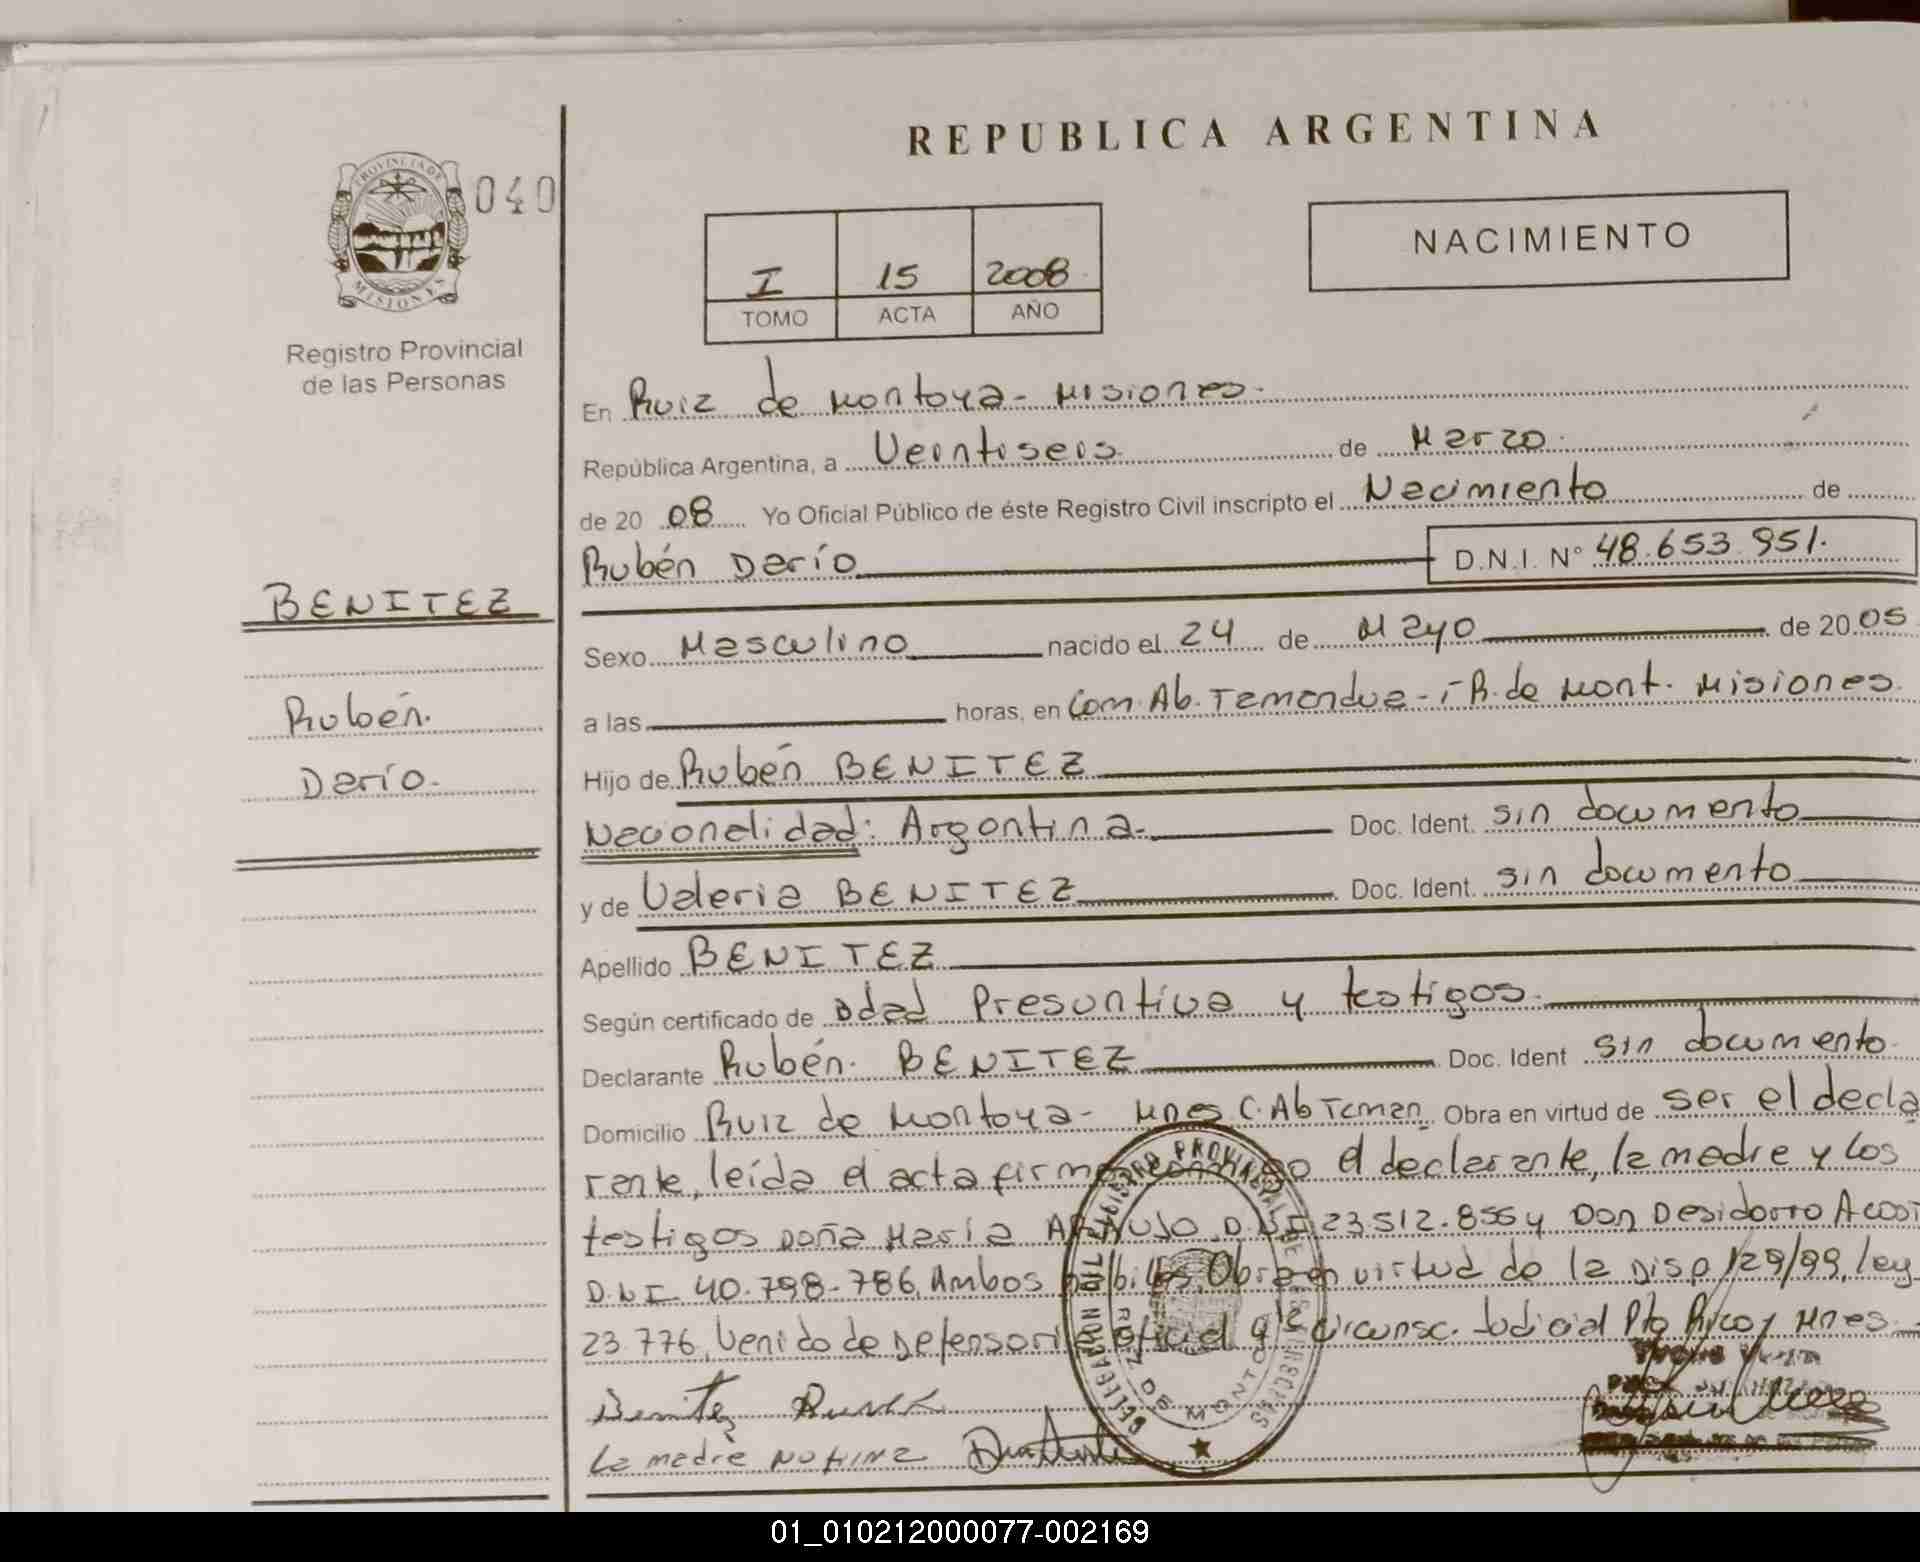 REPUBLICA ARGENTINA
PROVINCIA DE
MISIONES
040
Registro Provincial
de las Personas
I 15 2008
TOMO ACTA AÑO
NACIMIENTO
En Ruiz de Montoya - Misiones.
República Argentina, a Veintiseis de Marzo.
de 20 08 Yo Oficial Público de éste Registro Civil inscripto el Nacimiento de
Rubén Darío D.N.I. Nº 48.653.951.
BENITEZ
Rubén.
Darío.
Sexo Masculino nacido el 24 de Mayo de 20 05
a las horas, en Com. Ab. Tamandua - R. de Mont. Misiones.
Hijo de Rubén BENITEZ
Nacionalidad: Argentina. Doc. Ident. sin documento
y de Valeria BENITEZ Doc. Ident. sin documento
Apellido BENITEZ
Según certificado de edad Presuntiva y testigos.
Declarante Rubén. BENITEZ Doc. Ident sin documento.
Domicilio Ruiz de Montoya - Mnes C. Ab Taman. Obra en virtud de ser el decla
rante, leída el acta firma conmigo el declarante, la madre y los
testigos Doña María ARAUJO D.N.I 23.512.855 y Don Desidorio Acost
D.N.I 40.798.786, Ambos habiles, Obra en virtud de la Disp 129/99, ley
23.776, Venido de Defensoria oficial 4ta circunsc. Judicial Pto Rico, Mnes.
Benitez
La madre NO FIRMA
REGISTRO PROVINCIAL DE LAS PERSONAS
DELEGACION
RUIZ DE MONTOYA
01_010212000077-002169